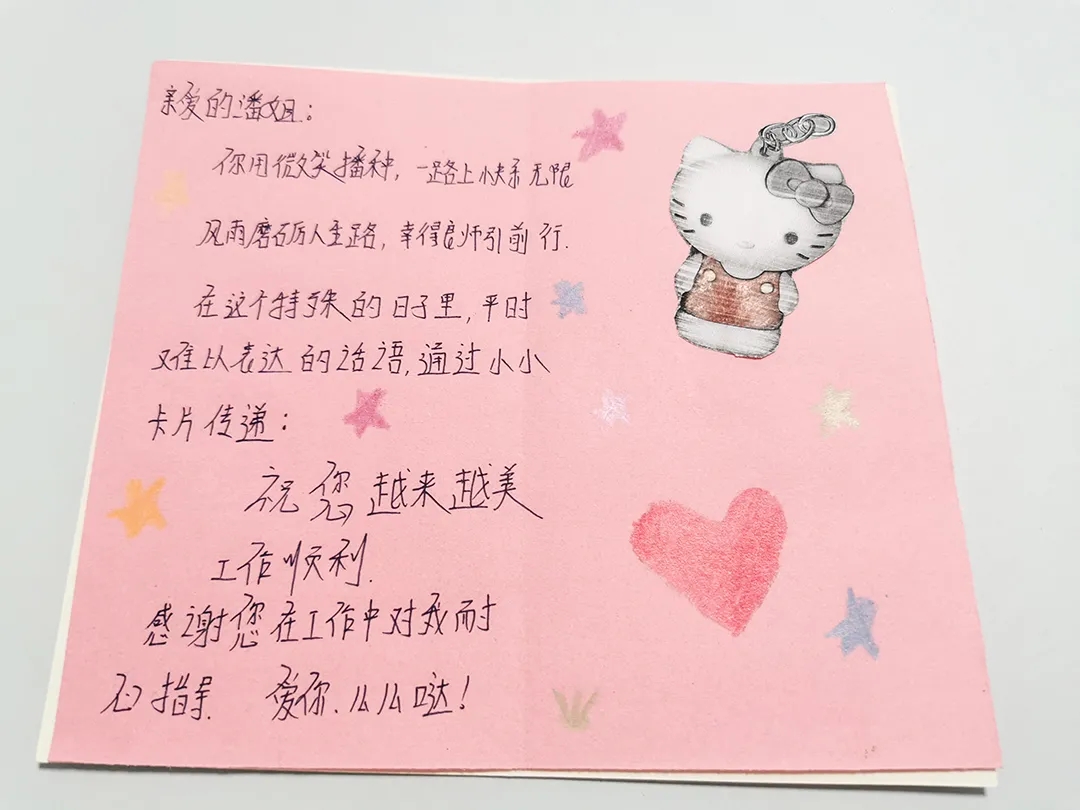 亲爱的潘姐：
你用微笑播种，一路上快乐无限
风雨磨砺人生路，幸得良师引前行.
在这个特殊的日子里，平时
难以表达的话语，通过小小
卡片传递：
祝您越来越美
工作顺利.
感谢您在工作中对我耐
心指导. 爱你.么么哒！